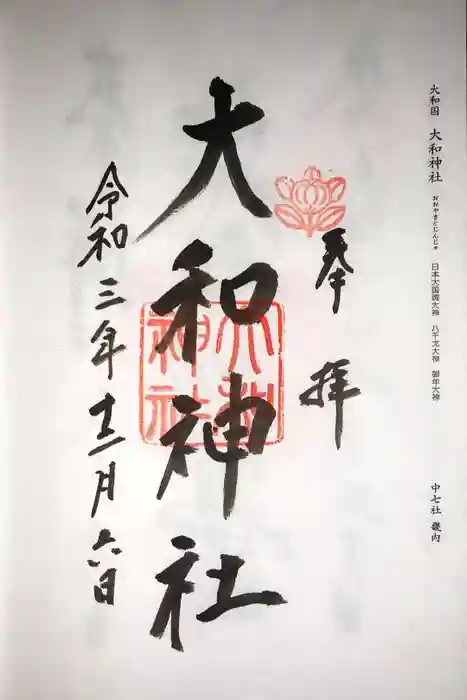 大和国 大和神社 おおやまとじんじゃ 日本大国魂大神 八千戈大神 御年大神 中七社 畿内
奉拝
大和神社
大和神社
令和三年十二月六日